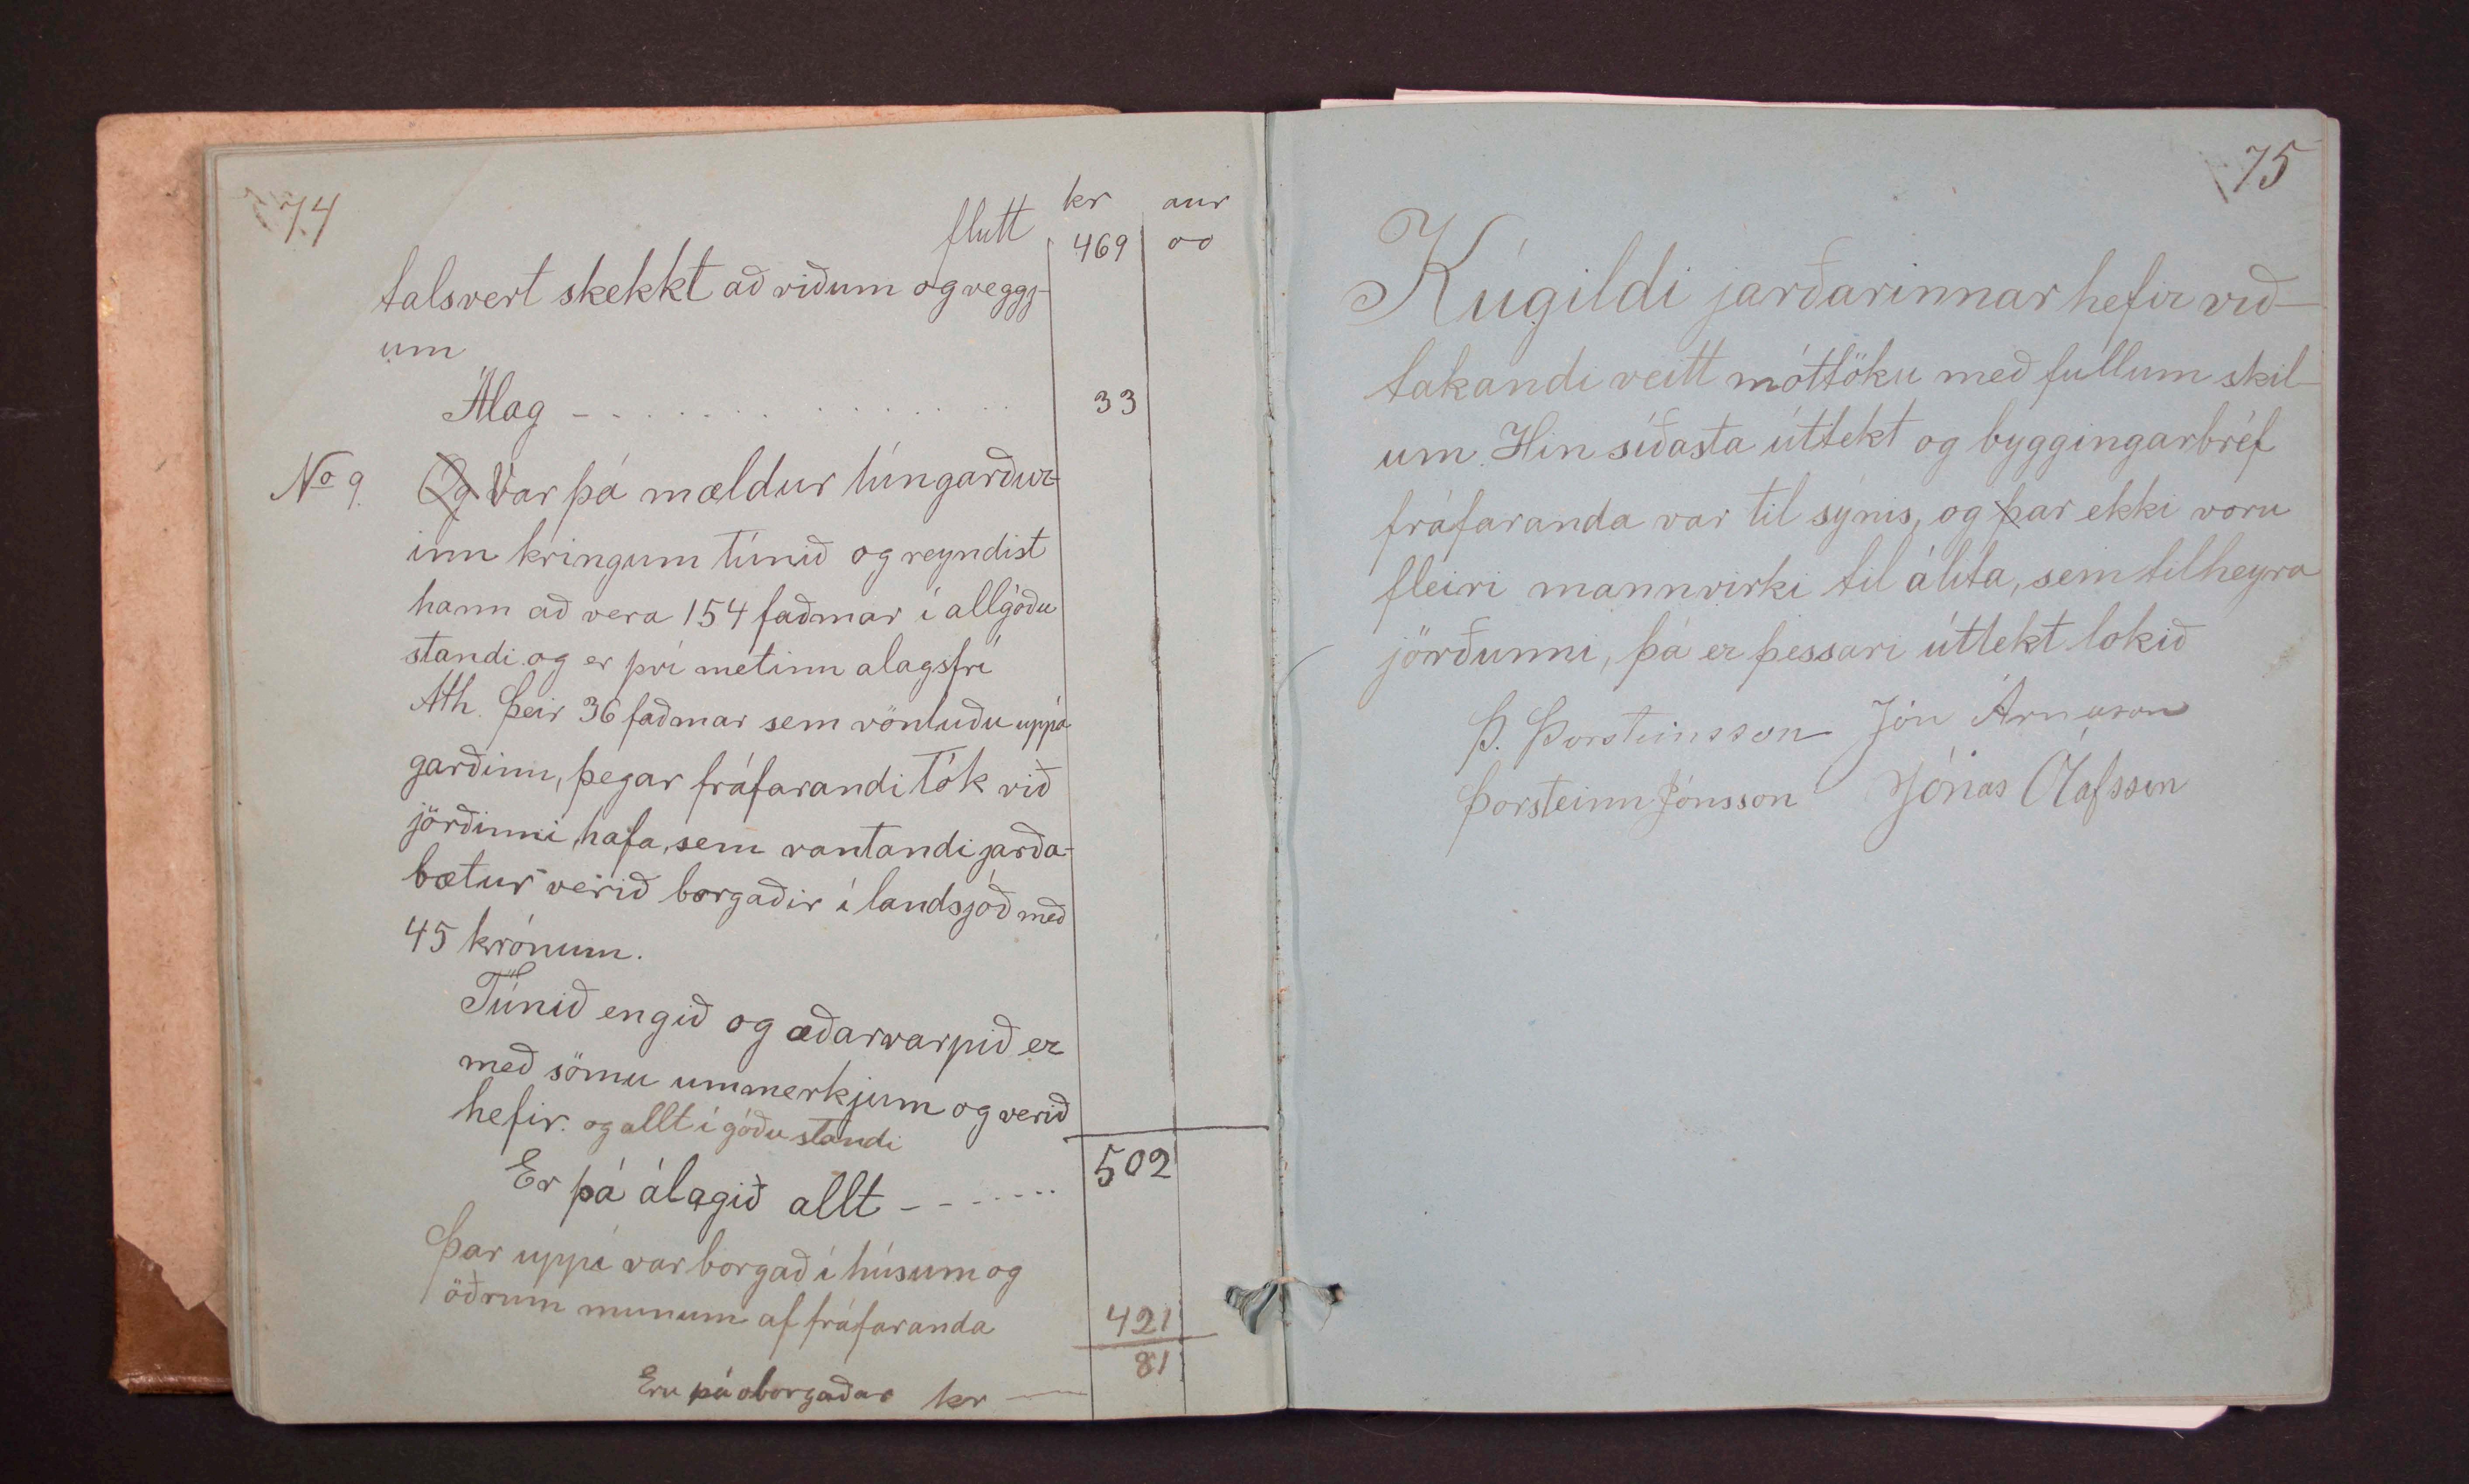 74
kr aur
flutt 469 00
talsvert skekkt að viðum og veggj-
um
Álag - - . . . . . . . . . . 33
No 9. Og Var þá mældur túngarður-
inn kringum túnið og reyndist
hann að vera 154 faðmar í allgóðu
standi og er því metinn alagsfrí
Ath. Þeir 36 faðmar sem vöntuðu uppá
garðinn, þegar fráfarandi tók við
jörðinni, hafa, sem vantandi jarða-
bætur verið borgaðir í landsjóð með
45 krónum.
Túnið engið og æðarvarpið er
með sömu ummerkjum og verið
hefir. og allt í góðu standi
Er þá álagið allt - - - - - . . . 502
Þar uppí var borgað í húsum og
öðrum munum af fráfaranda 421
Eru þá oborgaðar kr — 81
75
Kúgildi jarðarinnar hefir við-
takandi veitt móttöku með fullum skil-
um. Hin síðasta úttekt og byggingarbréf
fráfaranda var til sýnis, og þar ekki voru
fleiri mannvirki til álíta, sem tilheyra
jörðunni, þá er þessari úttekt lokið
Þ. Þorsteinsson Jón Árnason
Þorsteinn Jónsson Jónas Ólafsson